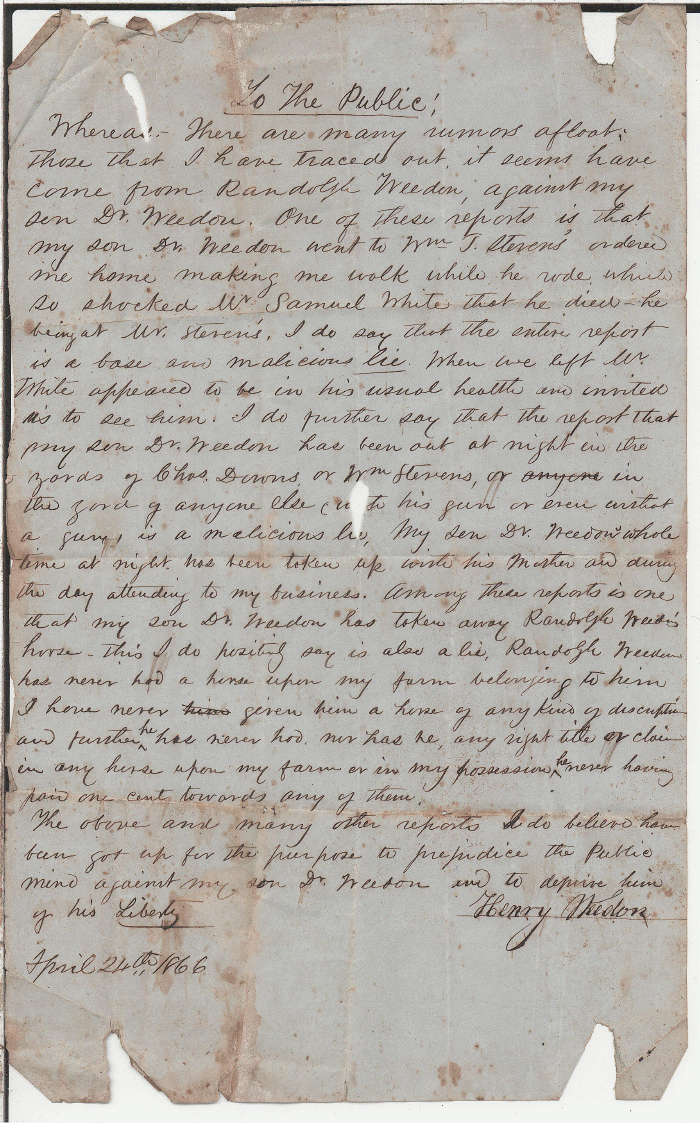 To The Public!
Whereas:- There are many rumors afloat;
those that I have traced out, it seems have
come from Randolph Weedon, against my
son Dr. Weedon. One of these reports is that
my son Dr. Weedon went to Wm T. Stevens' ordered
me home making me walk while he rode which
so shocked Mr. Samuel White that he died - he
being at Mr. Steven's. I do say that the entire report
is a base and malicious lie. When we left Mr
White appeared to be in his usual health and invited
us to see him. I do further say that the report that
my son Dr. Weedon has been out at night in the
yards of Chas. Downs, or Wm Stevens, or anyone in
the yard of anyone else, with his gun or even without
a gun, is a malicious lie, My son Dr. Weedon's whole
time at night has been taken up with his Mother and during
the day attending to my business. Among these reports is one
that my son Dr. Weedon has taken away Randolph Weedon's
horse - this I do positively say is also a lie, Randolph Weedon
has never had a horse upon my farm belonging to him
I have never him given him a horse of any kind of discription
and further he has never had, nor has he, any right title or claim
in any horse upon my farm or in my possession, he never having
paid one cent towards any of them.
The above and many other reports I do believe have
been got up for the purpose to prejudice the Public
mind against my son Dr. Weedon and to deprive him
of his Liberty
Henry Weedon
April 24th, 1866